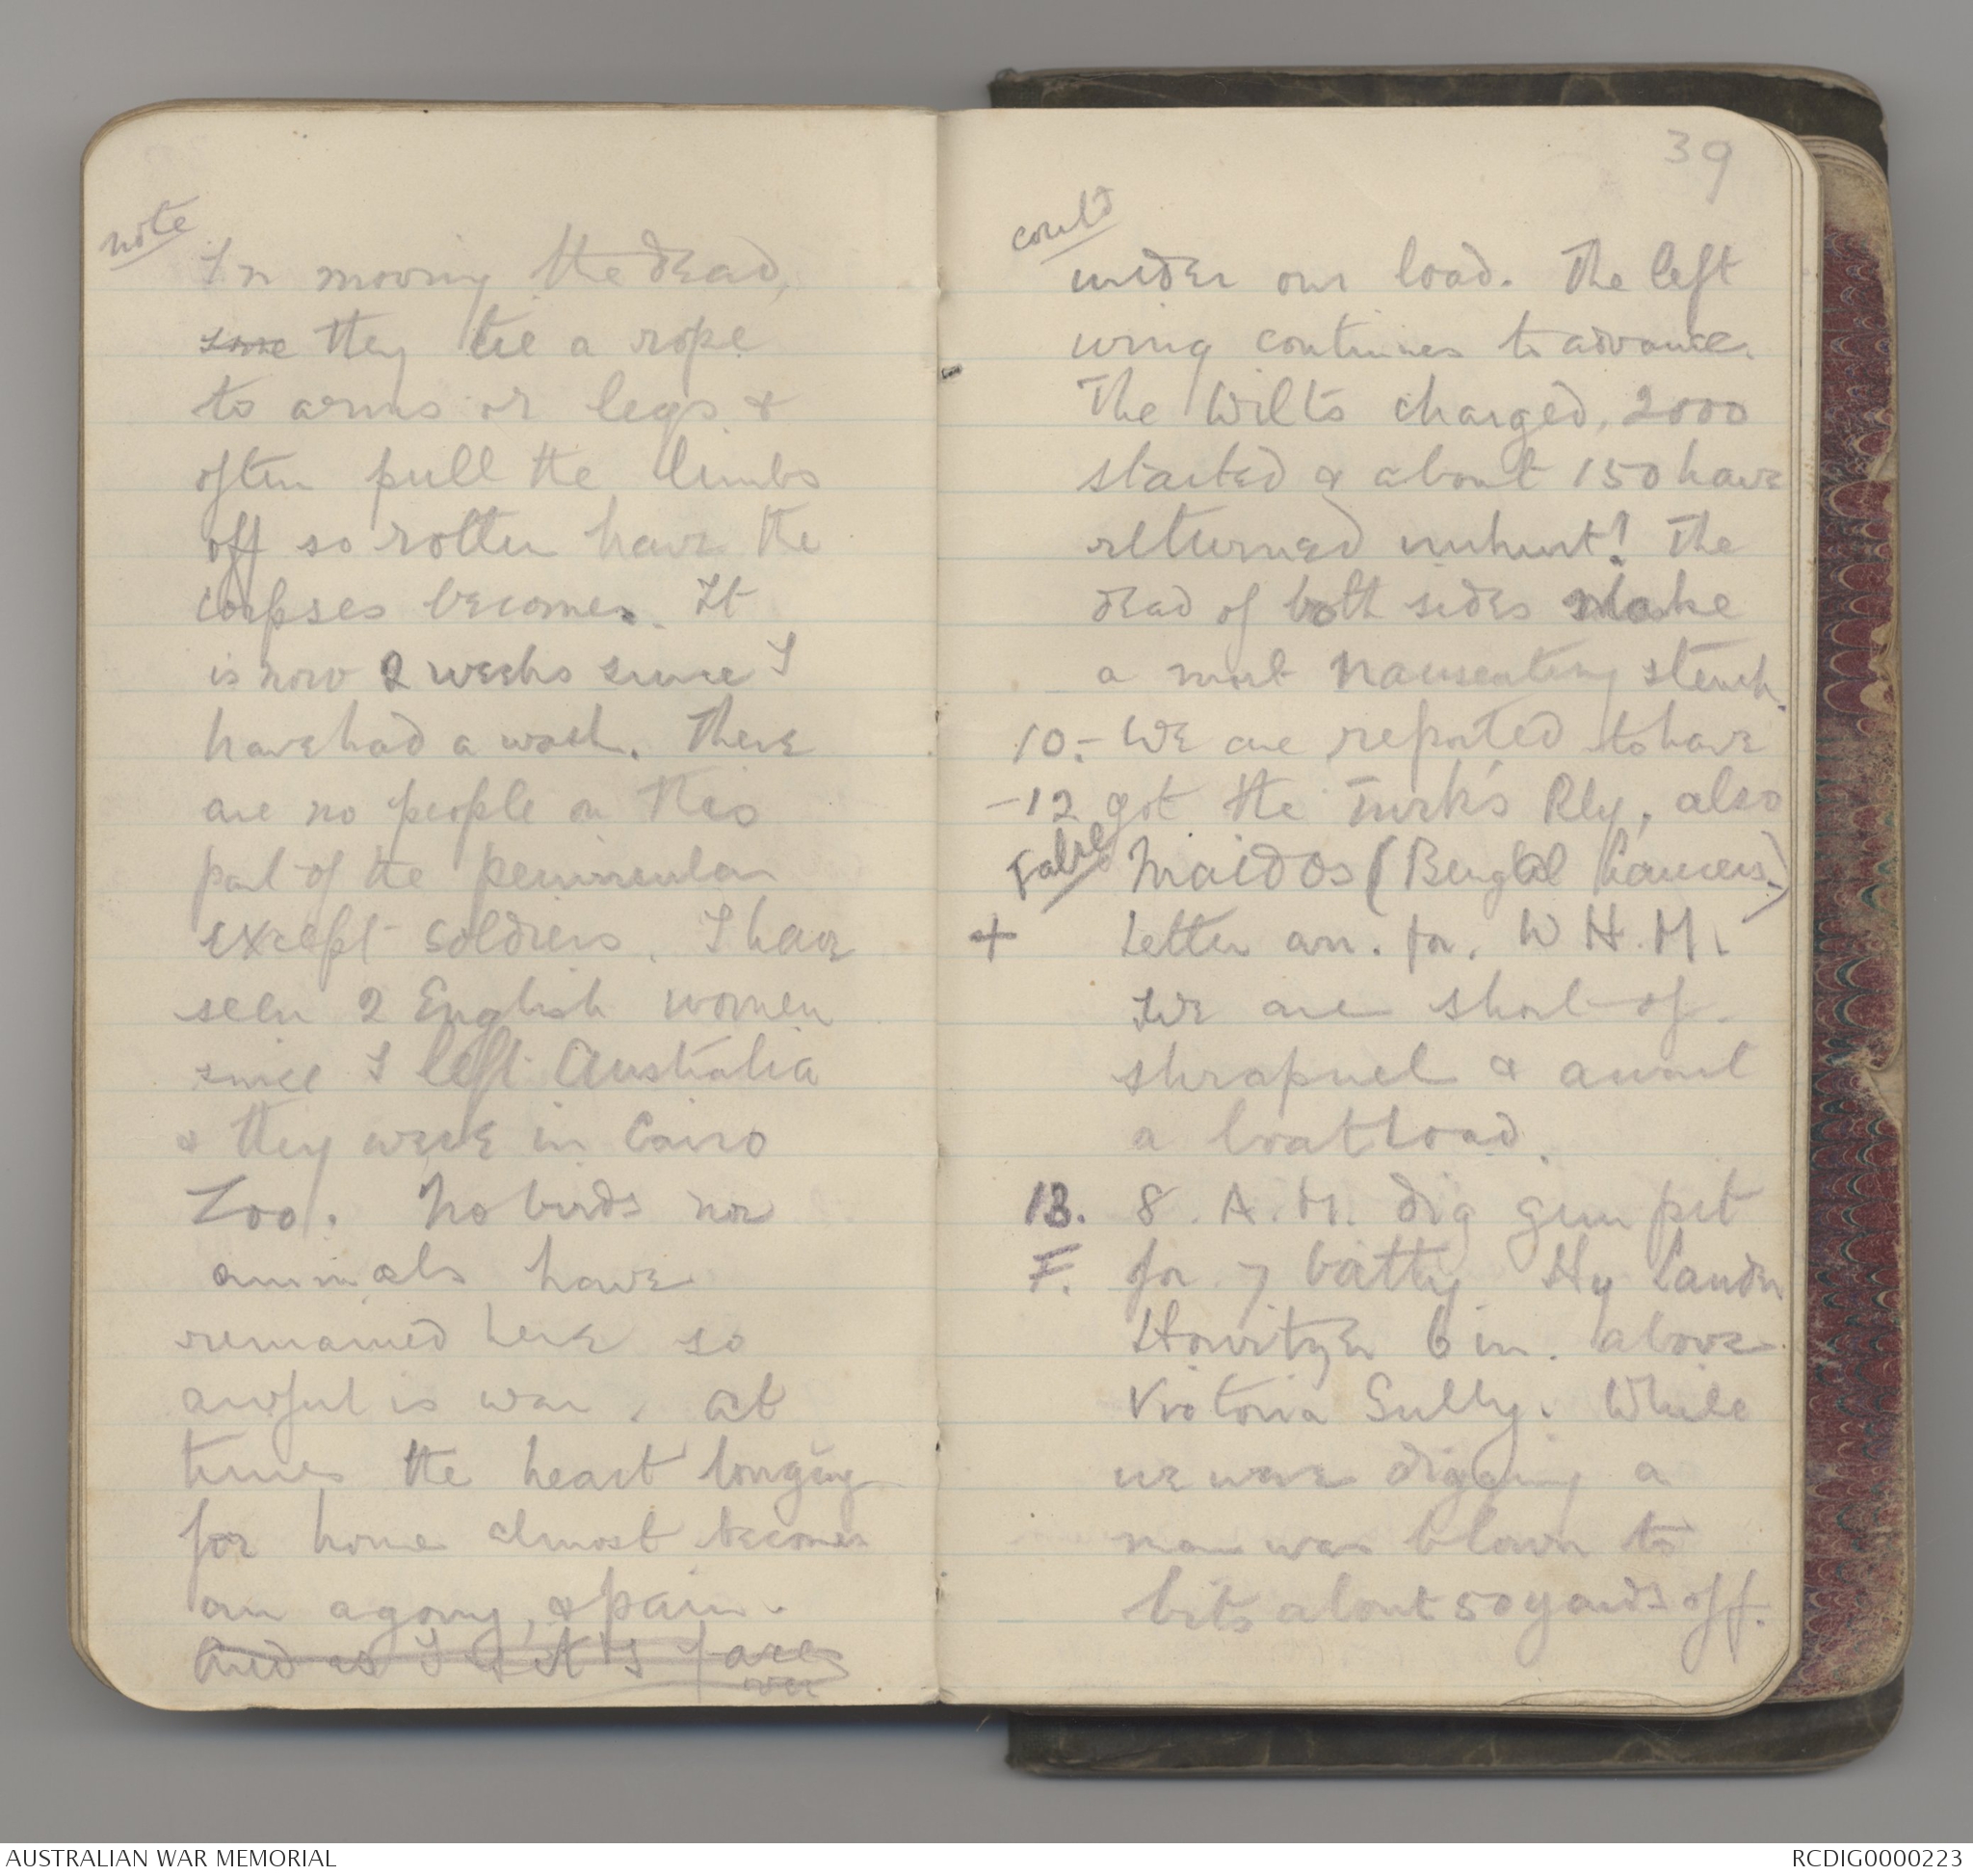 note
In moving the dead,
some they tie a rope
to arms or legs &
often pull the limbs
off so rotten have the
corpses become. It
is now 2 weeks since I
have had a wash. There
are no people on this
part of the peninsular
except soldiers. I have
seen 2 English women
since I left Australia
& they were in Cairo
Zoo. No birds nor
animals have
remained here so
awful is war. At
times the heart longing
for home almost becomes
an agony, & pain.
And as I sit I
over
39
contd
under our load. The left
wing continues to advance.
The Wilts charged, 2000
started & about 150 have
returned unhurt! The
dead of both sides make
a most nauseating stench.
10.- We are reported to have
-12 got the Turk's Rly, also
False Maidos (Bengal Lancers.)
+ Letter arr. for. W H. M.
We are short of
shrapnel & await
a boatload.
13. 8. A.M. dig gun pit
F. for 7 battry Hy
Howitzer 6 in. above
Victoria Gully. While
we were digging a
man was blown to
bits about 50 yards off.
AUSTRALIAN WAR MEMORIAL
RCDIG0000223